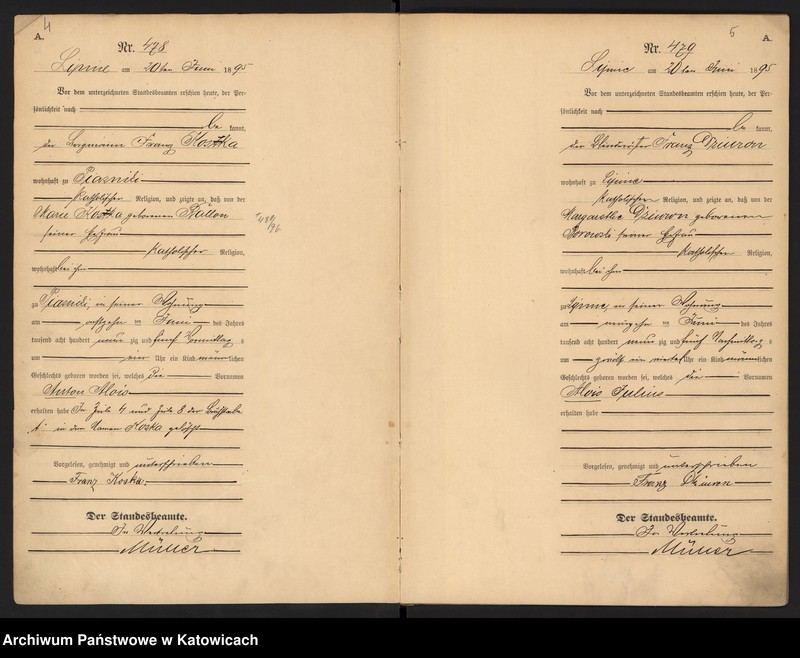 4
A.
Nr. 478
Lipine am 20ten Juni 1895
Vor dem unterzeichneten Standesbeamten erschien heute, der Per-
sönlichkeit nach
be kannt,
der Bergmann Franz Kostka
wohnhaft zu Piasniki
katholischer Religion, und zeigte an, daß von der
Marie Kostka geborenen
seiner Ehefrau
katholischer Religion,
wohnhaft bei ihm
zu Piasniki, in seiner Wohnung
am achtzehn ten Juni des Jahres
tausend acht hundert neun zig und fünf Vormittag s
um vier Uhr ein Kind männlichen
Geschlechts geboren worden sei, welches die Vornamen
Anton Alois
erhalten habe In Zeile 4 und Zeile 8 der Buchstabe
"t" in dem Namen Koska gelöscht
Vorgelesen, genehmigt und unterschrieben
Franz Koska.
Der Standesbeamte.
In Vertretung
Müller
5
A.
Nr. 479
Lipine am 20ten Juni 1895
Vor dem unterzeichneten Standesbeamten erschien heute, der Per-
sönlichkeit nach
be kannt,
der Franz Dziuron
wohnhaft zu Lipine
katholischen Religion, und zeigte an, daß von der
Margarethe Dziuron geborenen
Borowski seiner Ehefrau
katholischen Religion,
wohnhaft bei ihm
zu Lipine, in seiner Wohnung
am neunzehn ten Juni des Jahres
tausend acht hundert neun zig und fünf Nachmittag s
um zwölf ein viertel Uhr ein Kind männlichen
Geschlechts geboren worden sei, welches die Vornamen
Alois Julius
erhalten habe
Vorgelesen, genehmigt und unterschrieben
Franz Dziuron
Der Standesbeamte.
In Vertretung
Müller
Archiwum Państwowe w Katowicach